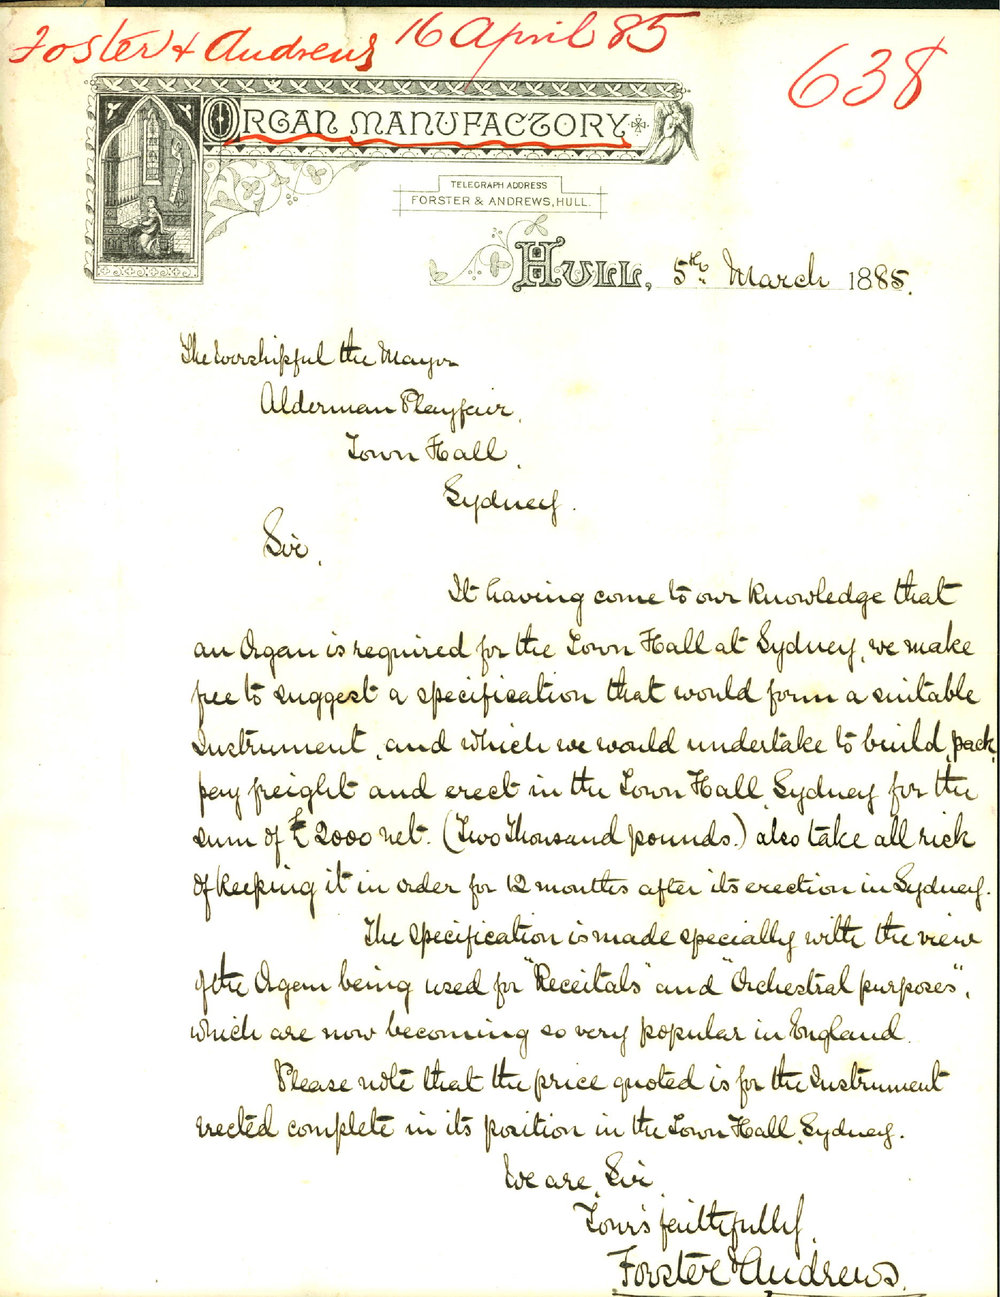 Foster & Andrews 16 April 85
638
ORGAN MANUFACTORY
TELEGRAPH ADDRESS
FORSTER & ANDREWS, HULL.
HULL, 5th March 1885.
The Worshipful the Mayor
Alderman Playfair,
Town Hall,
Sydney.
Sir,
It having come to our knowledge that
an Organ is required for the Town Hall at Sydney, we make
free to suggest a specification that would form a suitable
Instrument, and which we would undertake to build, pack,
pay freight and erect in the Town Hall, Sydney for the
sum of £2000 net. (Two Thousand pounds.) also take all risk
of keeping it in order for 12 months after its erection in Sydney.
The specification is made specially with the view
of the Organ being used for "Receitals" and "Orchestral purposes",
which are now becoming so very popular in England.
Please note that the price quoted is for the Instrument
erected complete in its position in the Town Hall, Sydney.
We are, Sir,
Your's faithfully,
Forster & Andrews.